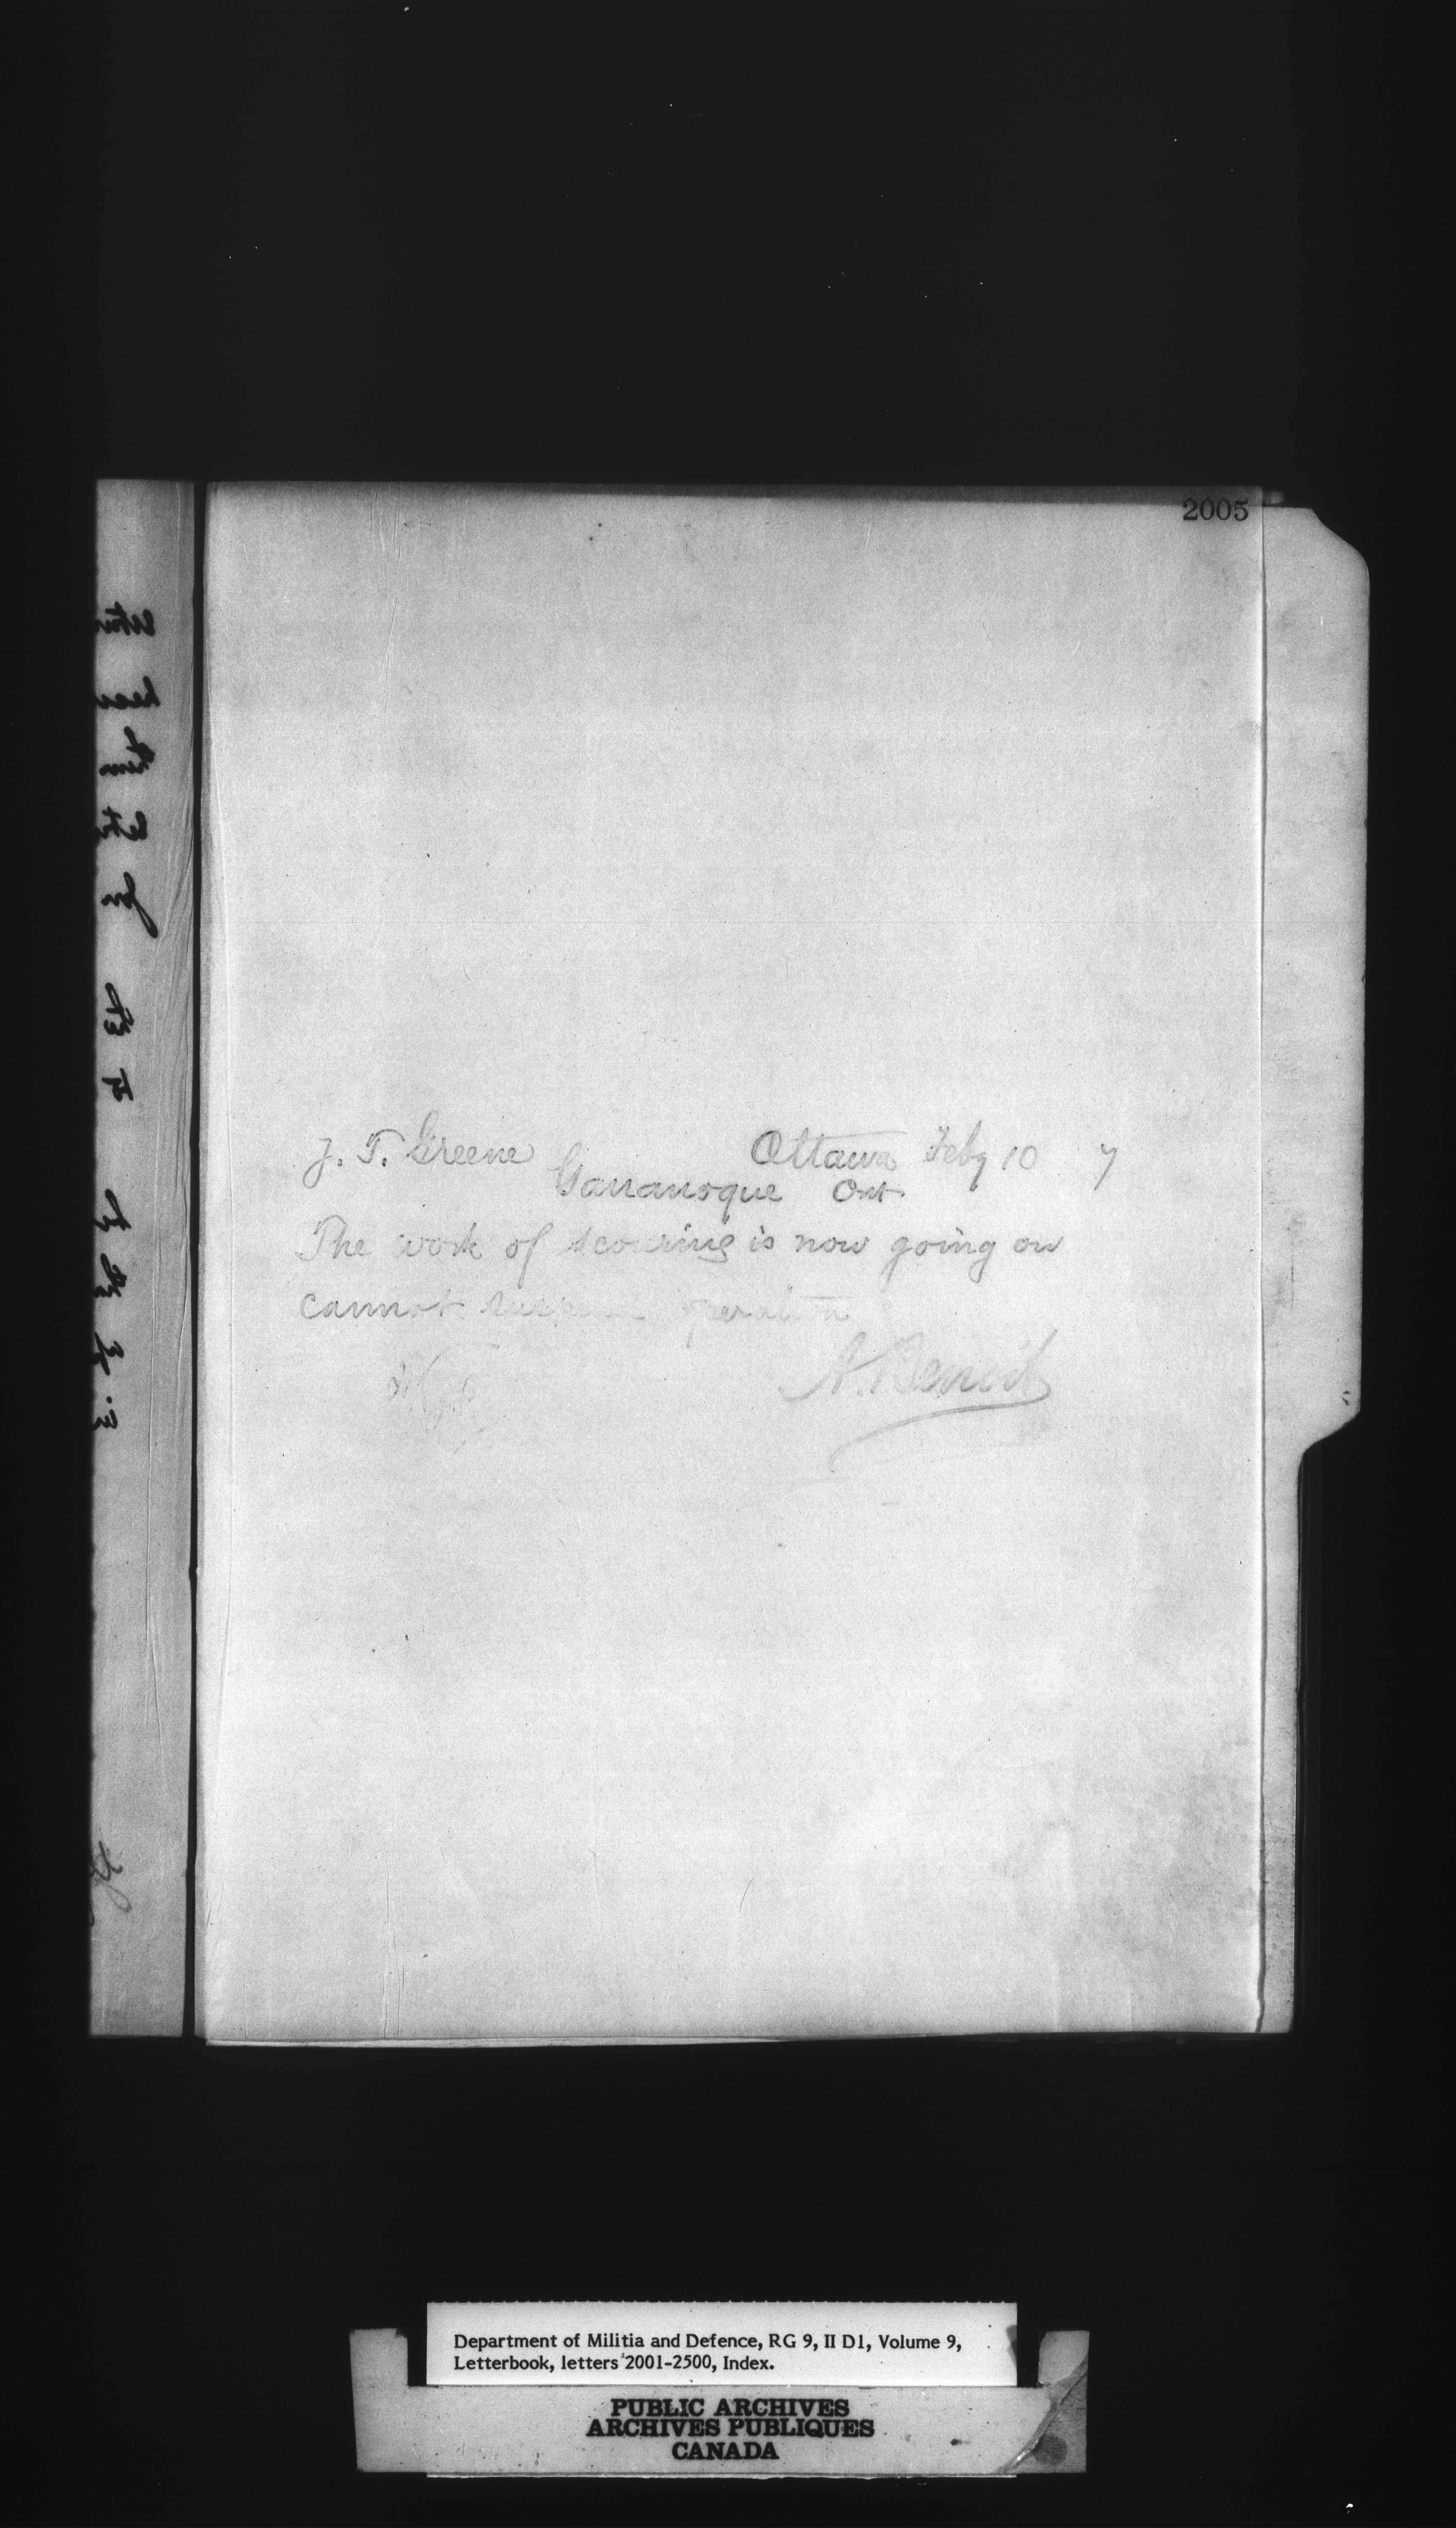 2005
J. T. Greene Ottawa Feby 10 7
Gananoque Ont.
The work of scouring is now going on
cannot suspend operation
A. Benoit
Department of Militia and Defence, RG 9, II D1, Volume 9,
Letterbook, letters 2001-2500, Index.
PUBLIC ARCHIVES
ARCHIVES PUBLIQUES
CANADA